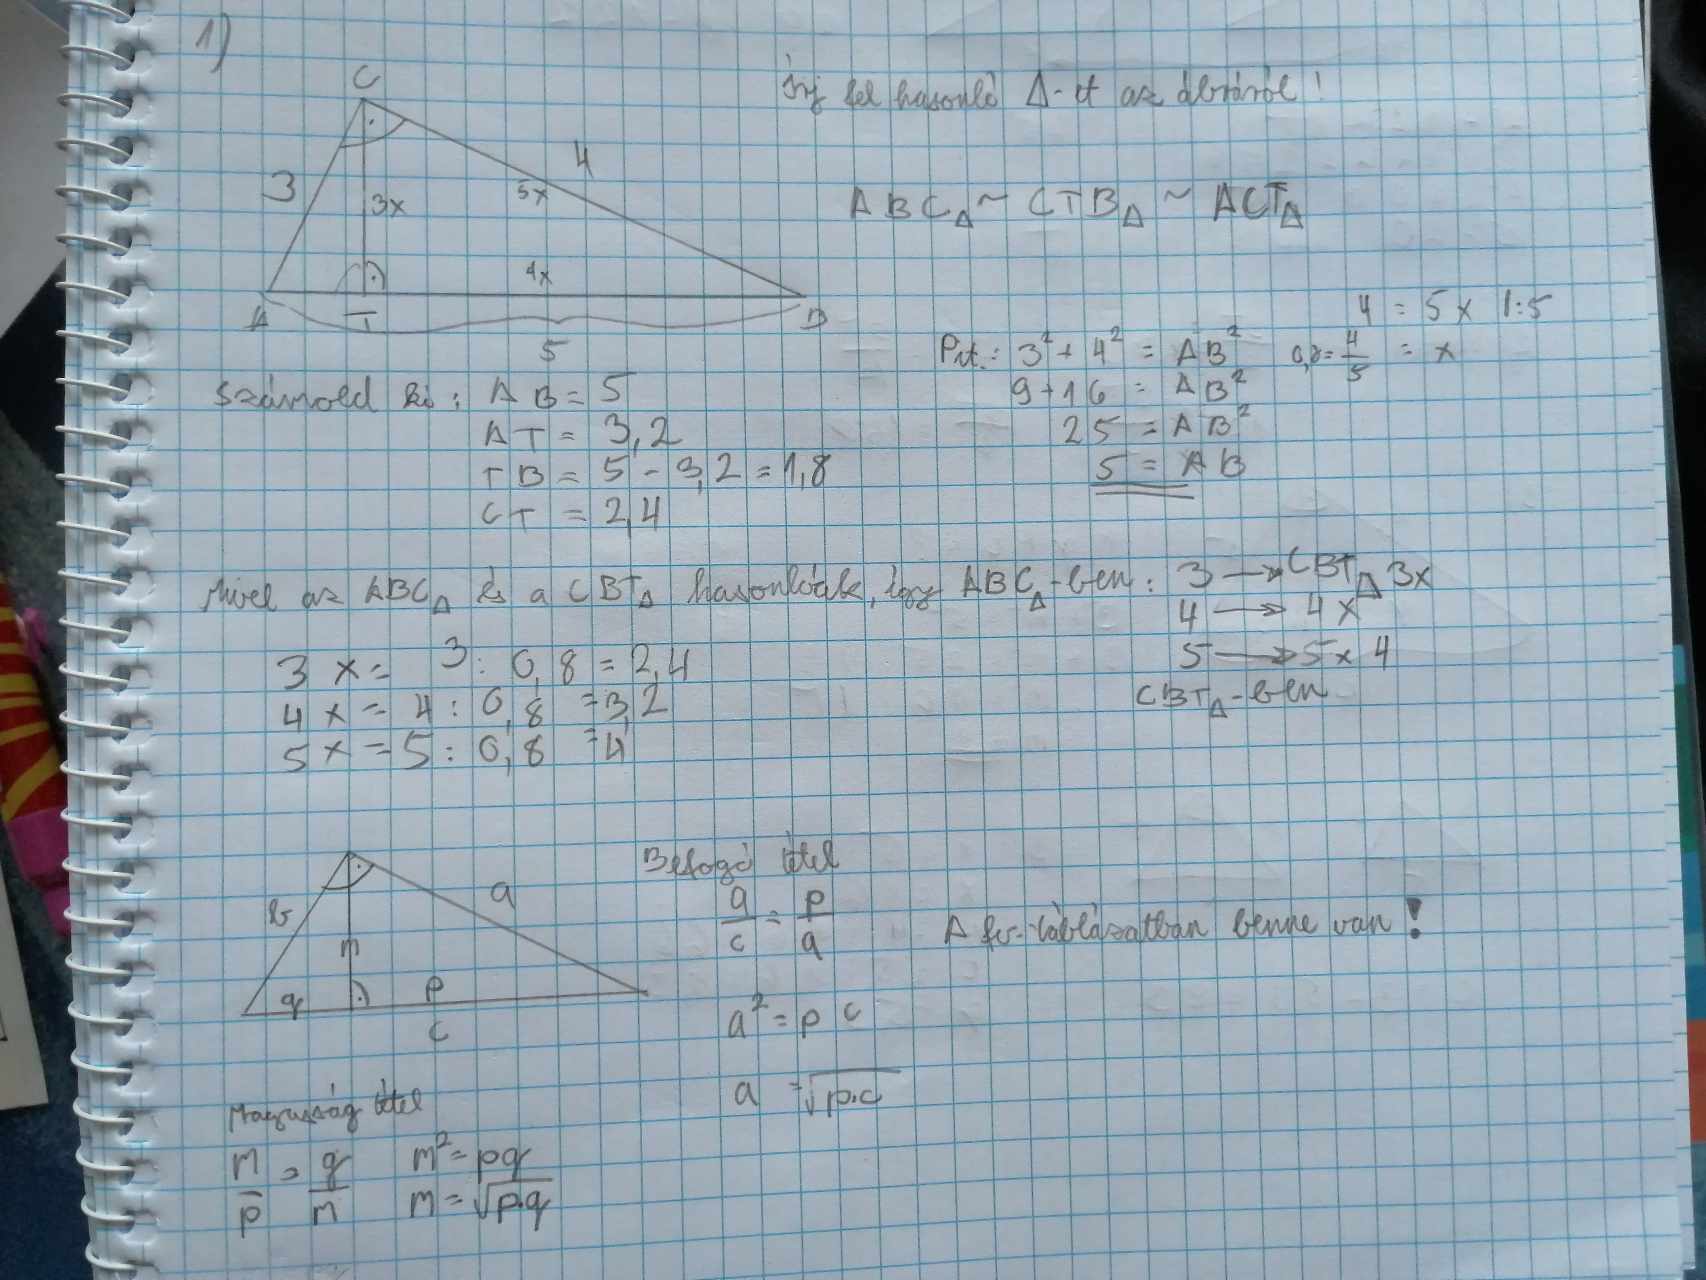 1)
Írj fel hasonló Δ-et az ábráról!
C
3
4
3x
5x
4x
A
T
B
5
ABCΔ ~ CTBΔ ~ ACTΔ
4 = 5x |:5
Pit.: 3² + 4² = AB²
0,8 = 4/5 = x
9 + 16 = AB²
25 = AB²
5 = AB
Számold ki: AB = 5
AT = 3,2
TB = 5 - 3,2 = 1,8
CT = 2,4
Mivel az ABCΔ és a CBTΔ hasonlóak, így ABCΔ-ben: 3 → CBTΔ 3x
4 → 4x
5 → 5x 4
CBTΔ-ben
3x = 3 : 0,8 = 2,4
4x = 4 : 0,8 = 3,2
5x = 5 : 0,8 = 4
b
a
m
q
p
c
Befogó tétel
a/c = p/a
A fv. táblázatban benne van!
a² = p c
a = √p·c
Magasság tétel
m/p = q/m
m² = pq
m = √p·q